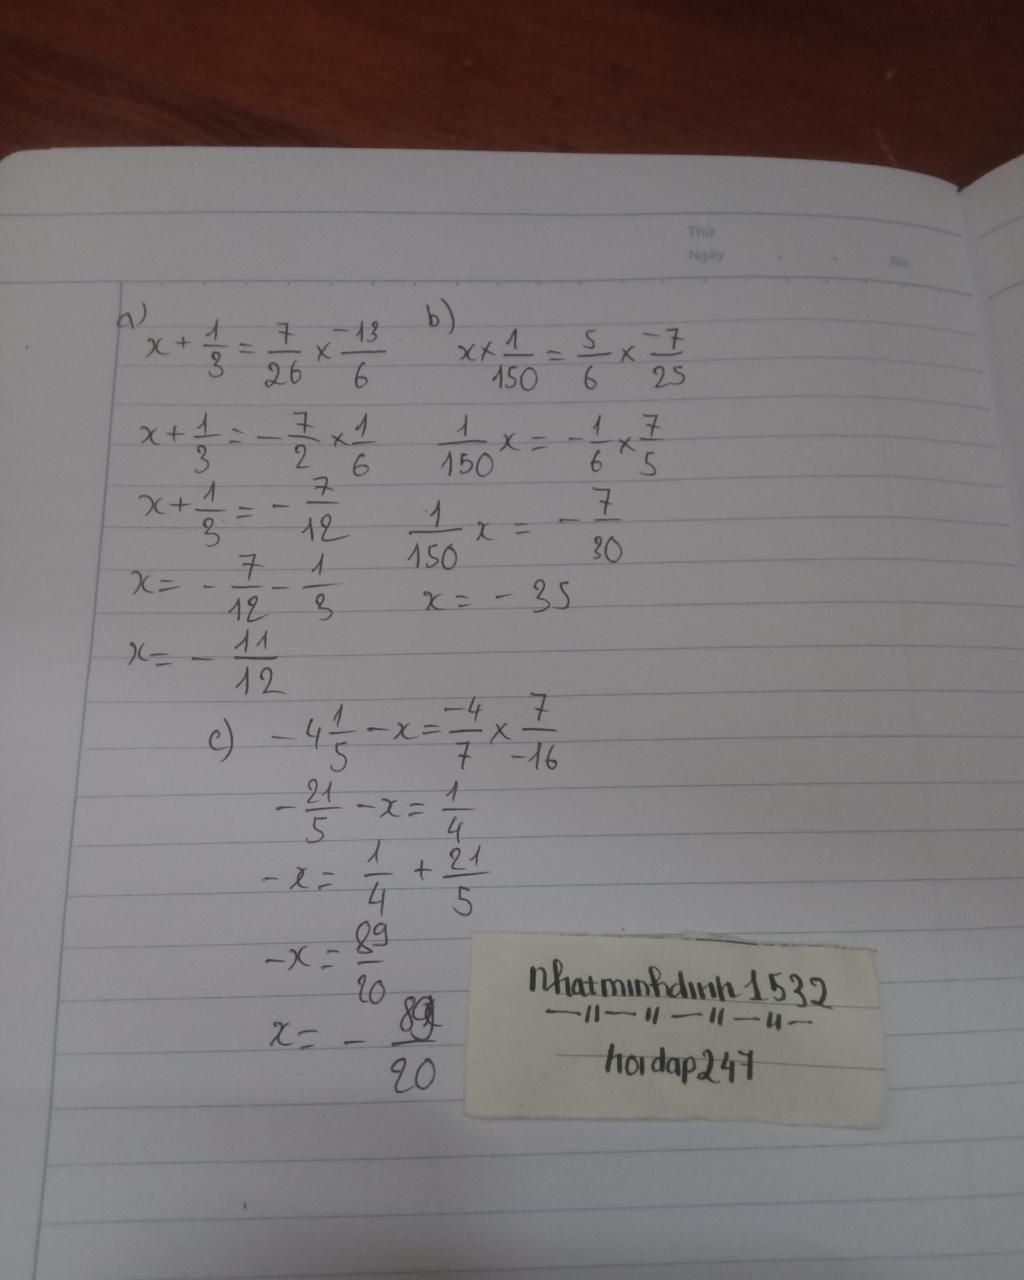 Thứ
Ngày
No.
a) x + 1/3 = 7/26 × -13/6
x + 1/3 = - 7/2 × 1/6
x + 1/3 = - 7/12
x = - 7/12 - 1/3
x = - 11/12
b) x × 1/150 = 5/6 × -7/25
1/150 x = - 1/6 × 7/5
1/150 x = - 7/30
x = - 35
c) - 4 1/5 - x = -4/7 × 7/-16
- 21/5 - x = 1/4
- x = 1/4 + 21/5
- x = 89/20
x = - 89/20
nhatminhdinh1532
hoidap247